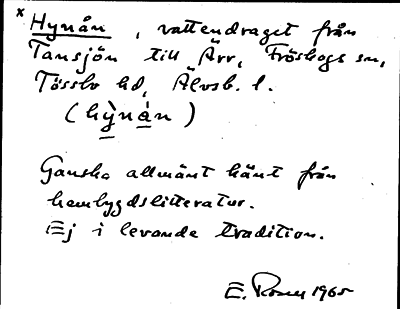 x Hynån, vattendraget från
Tansjön till Ärr, Fröskogs sn,
Tössbo hd, Älvsb. l.
(hỳnån)
Ganska allmänt känt från
hembygdslitteratur.
Ej i levande tradition.
E. Rosen 1965